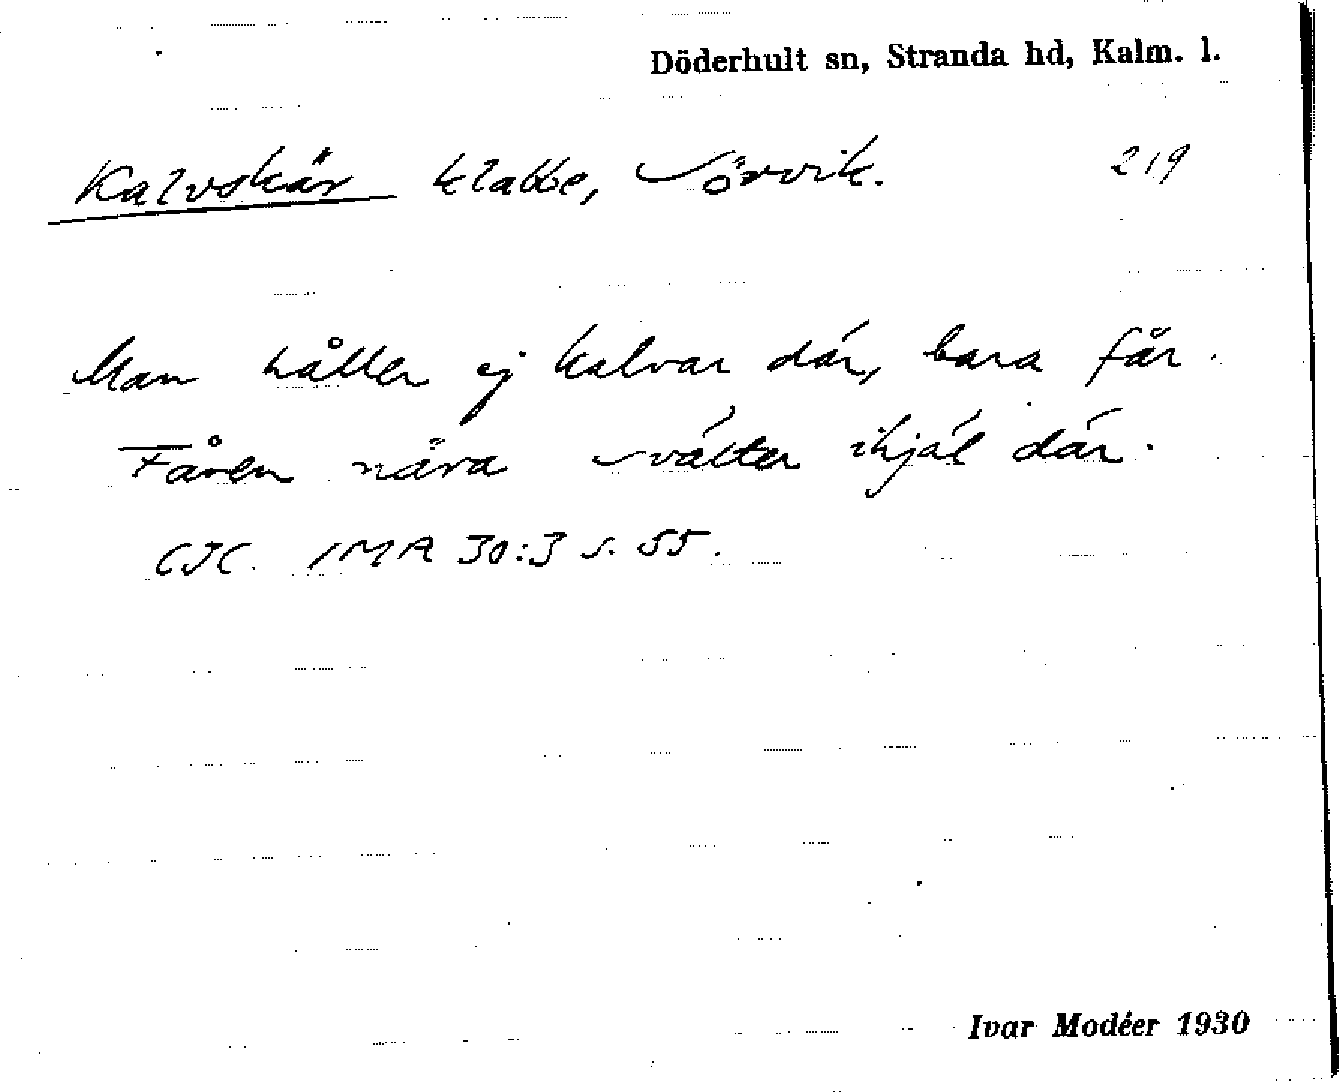 Döderhult sn, Stranda hd, Kalm. l.
Kalvskär klabbe, Sörvik. 219
Man håller ej kalvar där, bara får.
Fåren nära svälter ihjäl där.
CJC. IMA 30:3 s. 55.
Ivar Modéer 1930